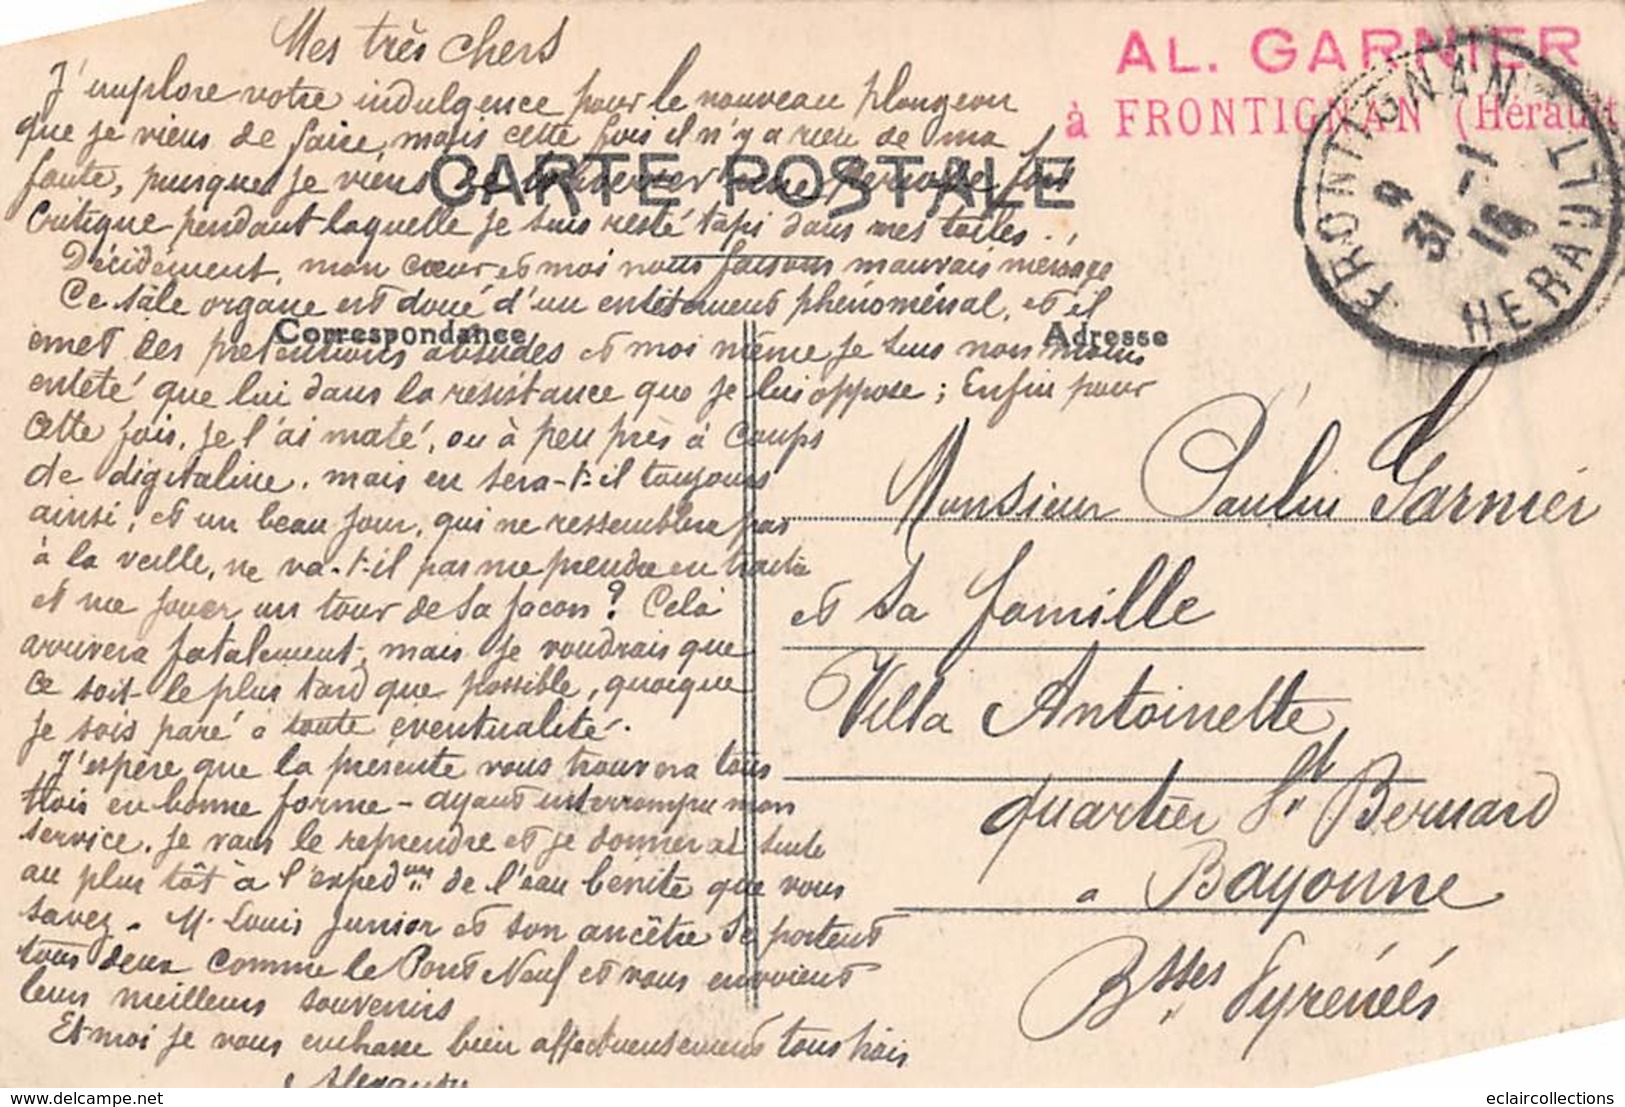 Mes très chers
J'implore votre indulgence pour le nouveau plongeon
que je viens de faire, mais cette fois il n'y a rien de ma
faute, puisque je viens de traverser une periode fort
critique pendant laquelle je suis resté tapi dans mes toiles.
Décidément, mon cœur et moi nous faisons mauvais ménage
Ce sâle organe est doué d'un entêtement phénoménal, et il
emet des prétentions absudes et moi même je suis non moins
enteté que lui dans la résistance que je lui oppose; Enfin pour
cette fois, je l'ai maté, ou à peu près à coups
de digitaline, mais en sera-t-il toujours
ainsi, et un beau jour, qui ne ressemblera pas
à la veille, ne va-t-il pas me prendre en traitre
et me jouer un tour de sa façon? Cela
arrivera fatalement, mais je voudrais que
ce soit le plus tard que possible, quoique
je sois paré à toute éventualité.
J'espère que la présente vous trouvera tous
trois en bonne forme - ayant interrompu mon
service, je vais le reprendre et je donnerai suite
au plus tôt à l'expedon de l'eau bénite que vous
savez. M. Louis Junior et son ancêtre se portent
tous deux comme le Pont Neuf et vous envoient
leurs meilleurs souvenirs
Et moi je vous embrasse bien affectueusement tous trois
Alexandre
CARTE POSTALE
Correspondance
Adresse
AL. GARNIER
à FRONTIGNAN (Hérault
FRONTIGNAN
9
31 -1
16
HERAULT
Monsieur Paulin Garnier
et sa famille
Villa Antoinette
quartier St Bernard
à Bayonne
Bsses Pyrénées
eclaircollections
delcampe.net